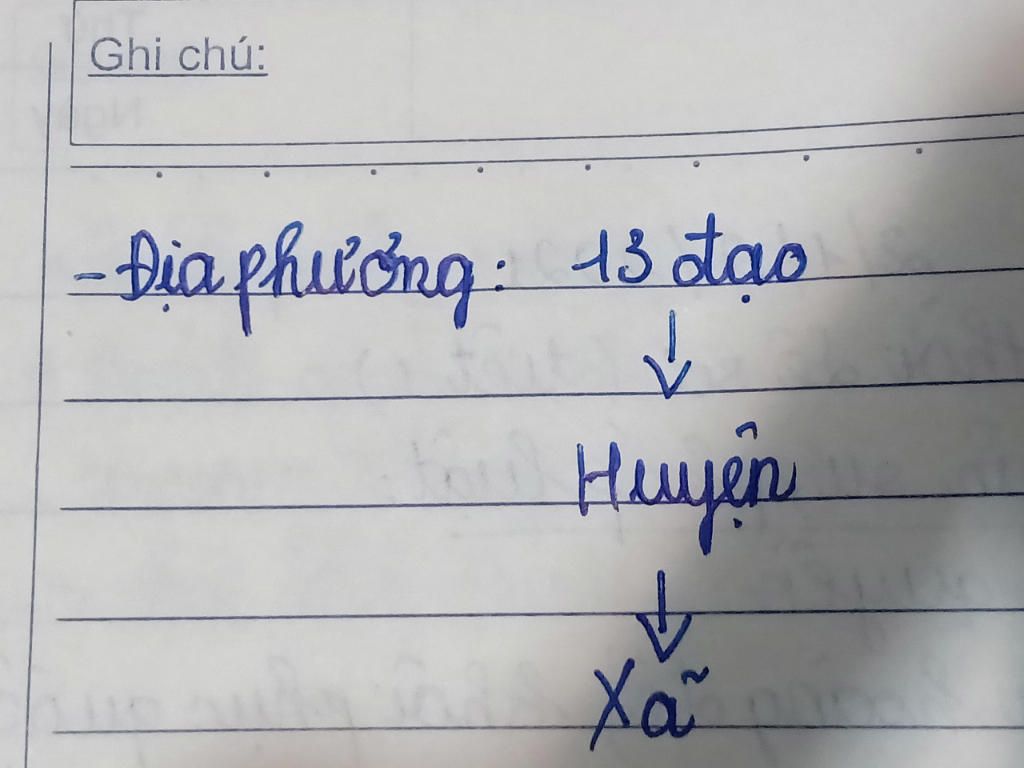 Ghi chú:
- Địa phương: 13 đạo
↓
Huyện
↓
Xã